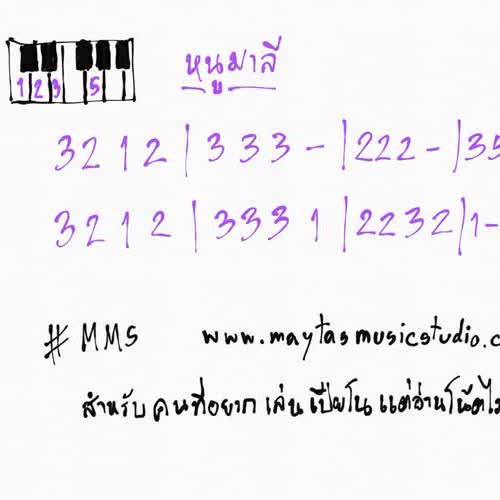 1 2 3 5
หนูมาลี
3 2 1 2 | 3 3 3 - | 2 2 2 - | 3 5
3 2 1 2 | 3 3 3 1 | 2 2 3 2 | 1 -
# MMS www.maytasmusicstudio.c
สำหรับ คนที่อยาก เล่น เปียโน แต่อ่านโน้ตไม